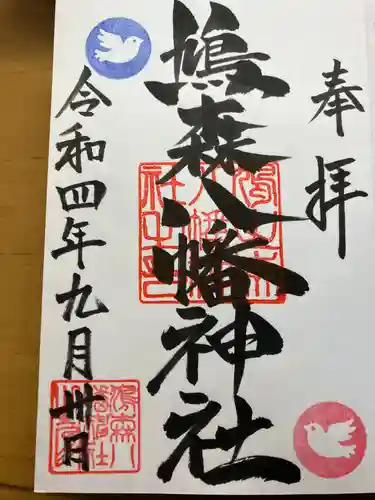 奉拝
鳩森八幡神社
令和四年九月卅日